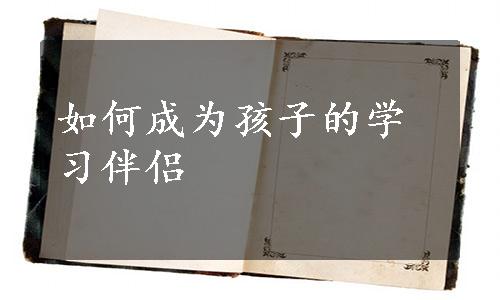 如何成为孩子的学
习伴侣